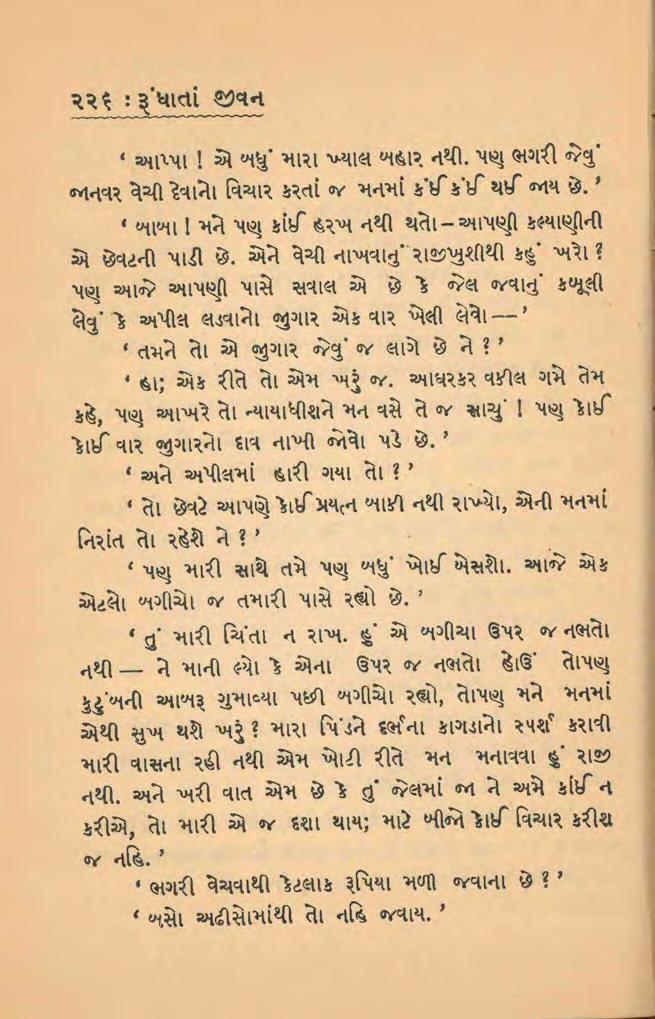 ૨૨૬ : રૂંધાતાં જીવન
‘ આપ્પા ! એ બધું મારા ખ્યાલ બહાર નથી. પણ ભગરી જેવું
જાનવર વેચી દેવાનો વિચાર કરતાં જ મનમાં કંઈ કંઈ થઈ જાય છે. ’
‘ બાબા ! મને પણ કાંઈ હરખ નથી થતો – આપણી કલ્યાણીની
એ છેવટની પાડી છે. એને વેચી નાખવાનું રાજીખુશીથી કહું ખરો ?
પણ આજે આપણી પાસે સવાલ એ છે કે જેલ જવાનું કબૂલી
લેવું કે અપીલ લડવાનો જુગાર એક વાર ખેલી લેવો —– ’
‘ તમને તો એ જુગાર જેવું જ લાગે છે ને ? ’
‘ હા; એક રીતે તો એમ ખરું જ. આધરકર વકીલ ગમે તેમ
કહે, પણ આખરે તો ન્યાયાધીશને મન વસે તે જ સાચું ! પણ કોઈ
કોઈ વાર જુગારનો દાવ નાખી જોવો પડે છે. ’
‘ અને અપીલમાં હારી ગયા તો ? ’
‘ તો છેવટે આપણે કોઈ પ્રયત્ન બાકી નથી રાખ્યો, એની મનમાં
નિરાંત તો રહેશે ને ? ’
‘ પણ મારી સાથે તમે પણ બધું ખોઈ બેસશો. આજે એક
એટલો બગીચો જ તમારી પાસે રહ્યો છે. ’
‘ તું મારી ચિંતા ન રાખ. હું એ બગીચા ઉપર જ નભતો
નથી — ને માની લ્યો કે એના ઉપર જ નભતો હોઉં તોપણ
કુટુંબની આબરૂ ગુમાવ્યા પછી બગીચો રહ્યો, તોપણ મને મનમાં
એથી સુખ થશે ખરું ? મારા પિંડને દર્ભના કાગડાનો સ્પર્શ કરાવી
મારી વાસના રહી નથી એમ ખોટી રીતે મન મનાવવા હું રાજી
નથી. અને ખરી વાત એમ છે કે તું જેલમાં જા ને અમે કાંઈ ન
કરીએ, તો મારી એ જ દશા થાય; માટે બીજો કોઈ વિચાર કરીશ
જ નહિ. ’
‘ ભગરી વેચવાથી કેટલાક રૂપિયા મળી જવાના છે ? ’
‘ બસો અઢીસોમાંથી તો નહિ જવાય. ’